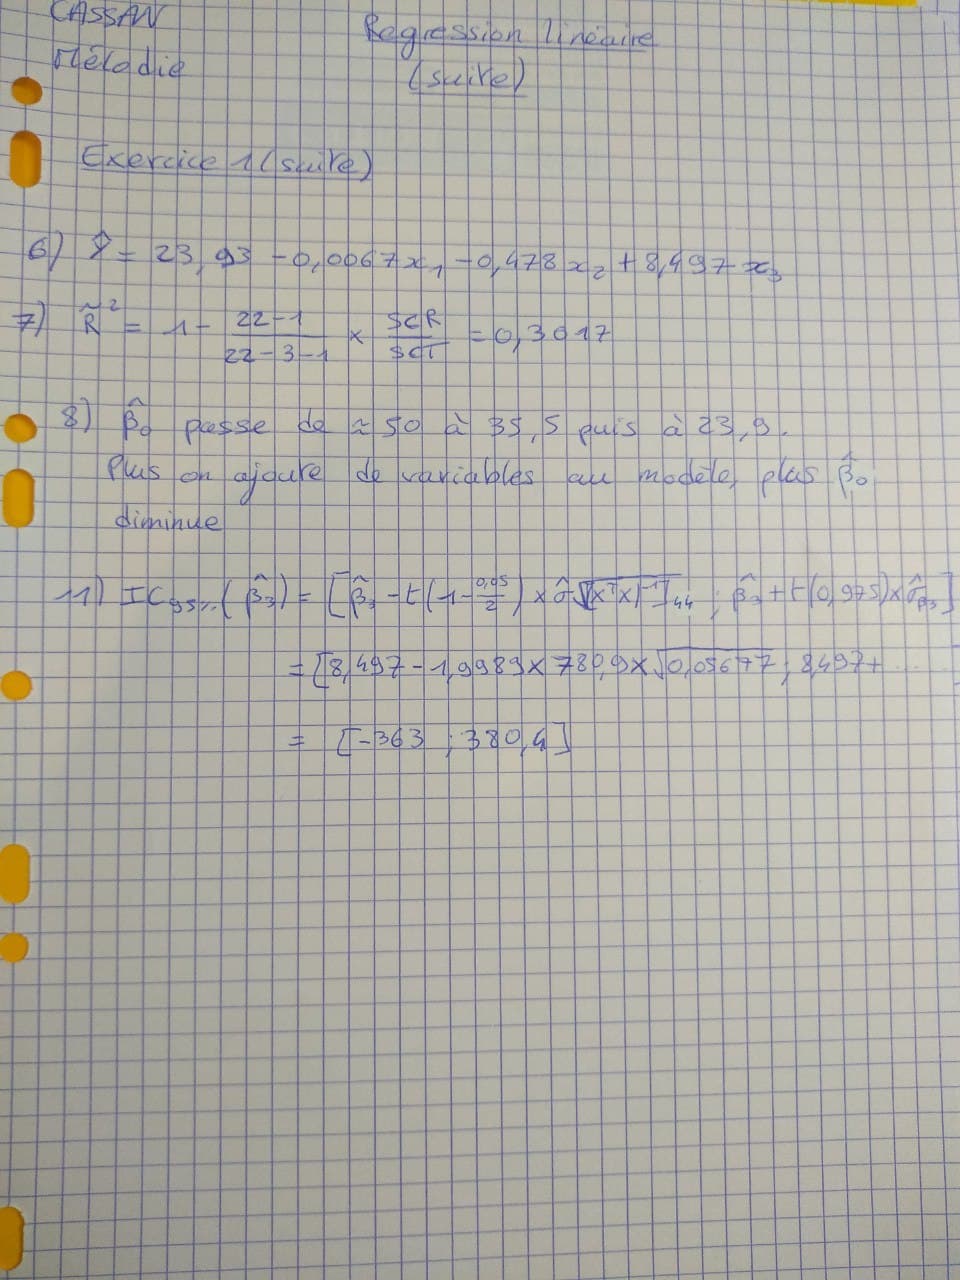 CASSAN
Mélodie
Régression linéaire
(suite)
Exercice 1 (suite)
6) Ŷ = 23,93 - 0,0067x₁ - 0,478x₂ + 8,497x₃
7) R̃² = 1 - (22-1)/(22-3-1) × SCR/SCT = 0,3017
8) β̂₀ passe de ≈ 50 à 35,5 puis à 23,9.
Plus on ajoute de variables au modèle, plus β̂₀
diminue
11) IC₉₅% (β̂₃) = [β̂₃ - t(1 - 0,05/2) × σ̂ √[(XᵀX)⁻¹]₄₄ ; β̂₃ + t(0,975) × σ̂β̂₃]
= [8,497 - 1,9989 × 780,9 × √0,05677 ; 8,497 + ....
= [-363 ; 380,4]